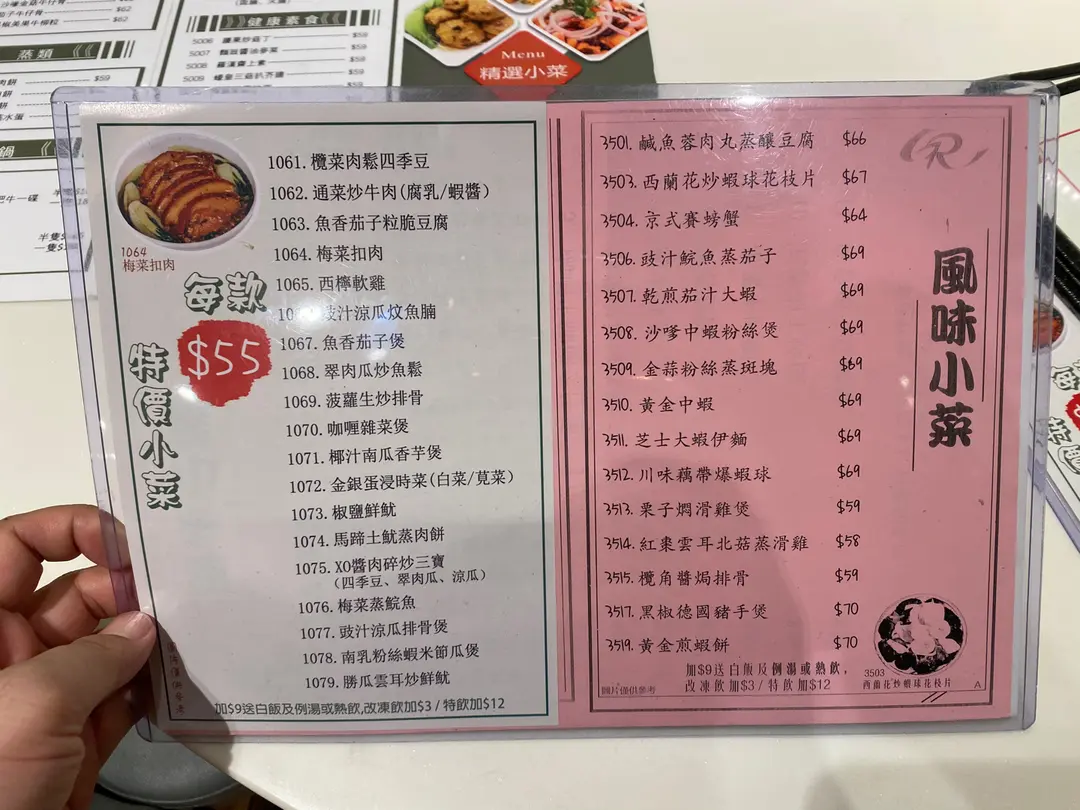 健康素食
5006 腰果炒菇丁 $59
5007 麵豉醬油麥菜 $59
5008 羅漢齋上素 $59
5009 蠔皇三菇扒芥膽 $59
蒸類
$62
$62
$59
Menu
精選小菜
1064
梅菜扣肉
每款
$55
特價小菜
1061. 欖菜肉鬆四季豆
1062. 通菜炒牛肉(腐乳/蝦醬)
1063. 魚香茄子粒脆豆腐
1064. 梅菜扣肉
1065. 西檸軟雞
豉汁涼瓜炆魚腩
1067. 魚香茄子煲
1068. 翠肉瓜炒魚鬆
1069. 菠蘿生炒排骨
1070. 咖喱雜菜煲
1071. 椰汁南瓜香芋煲
1072. 金銀蛋浸時菜(白菜/莧菜)
1073. 椒鹽鮮魷
1074. 馬蹄土魷蒸肉餅
1075. XO醬肉碎炒三寶
(四季豆、翠肉瓜、涼瓜)
1076. 梅菜蒸鯇魚
1077. 豉汁涼瓜排骨煲
1078. 南乳粉絲蝦米節瓜煲
1079. 勝瓜雲耳炒鮮魷
加$9送白飯及例湯或熱飲,改凍飲加$3 / 特飲加$12
3501. 鹹魚蓉肉丸蒸釀豆腐 $66
3503. 西蘭花炒蝦球花枝片 $67
3504. 京式賽螃蟹 $64
3506. 豉汁鯇魚蒸茄子 $69
3507. 乾煎茄汁大蝦 $69
3508. 沙嗲中蝦粉絲煲 $69
3509. 金蒜粉絲蒸斑塊 $69
3510. 黃金中蝦 $69
3511. 芝士大蝦伊麵 $69
3512. 川味藕帶爆蝦球 $69
3513. 栗子燜滑雞煲 $59
3514. 紅棗雲耳北菇蒸滑雞 $58
3515. 欖角醬焗排骨 $59
3517. 黑椒德國豬手煲 $70
3519. 黃金煎蝦餅 $70
加$9送白飯及例湯或熱飲,
改凍飲加$3 / 特飲加$12
圖片僅供參考
R
風味小菜
3503
西蘭花炒蝦球花枝片
A